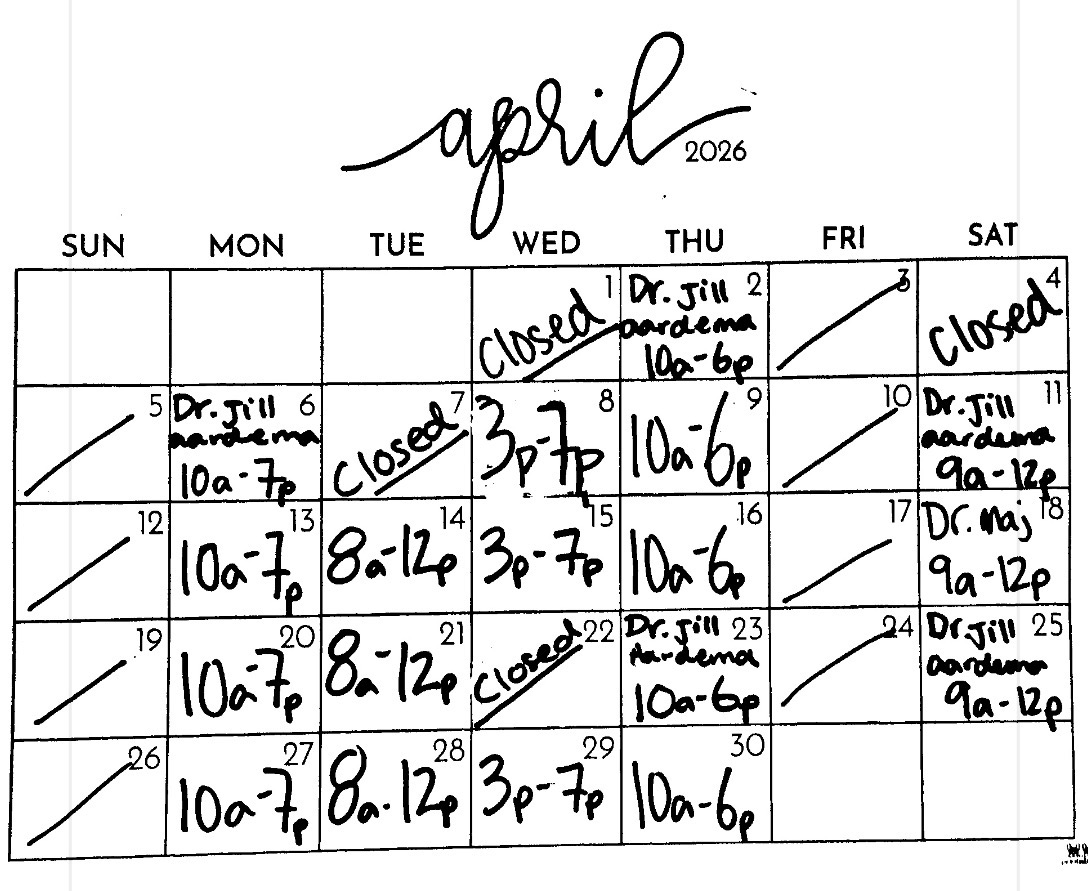 april
2026
SUN MON TUE WED THU FRI SAT
1 2 3 4
Closed Dr. Jill Closed
aardema
10a-6p
5 6 7 8 9 10 11
Dr. Jill Closed 3p-7p 10a-6p Dr. Jill
aardema aardema
10a-7p 9a-12p
12 13 14 15 16 17 18
10a-7p 8a-12p 3p-7p 10a-6p Dr. Maj
9a-12p
19 20 21 22 23 24 25
10a-7p 8a-12p Closed Dr. Jill Dr. Jill
Aardema aardema
10a-6p 9a-12p
26 27 28 29 30
10a-7p 8a-12p 3p-7p 10a-6p